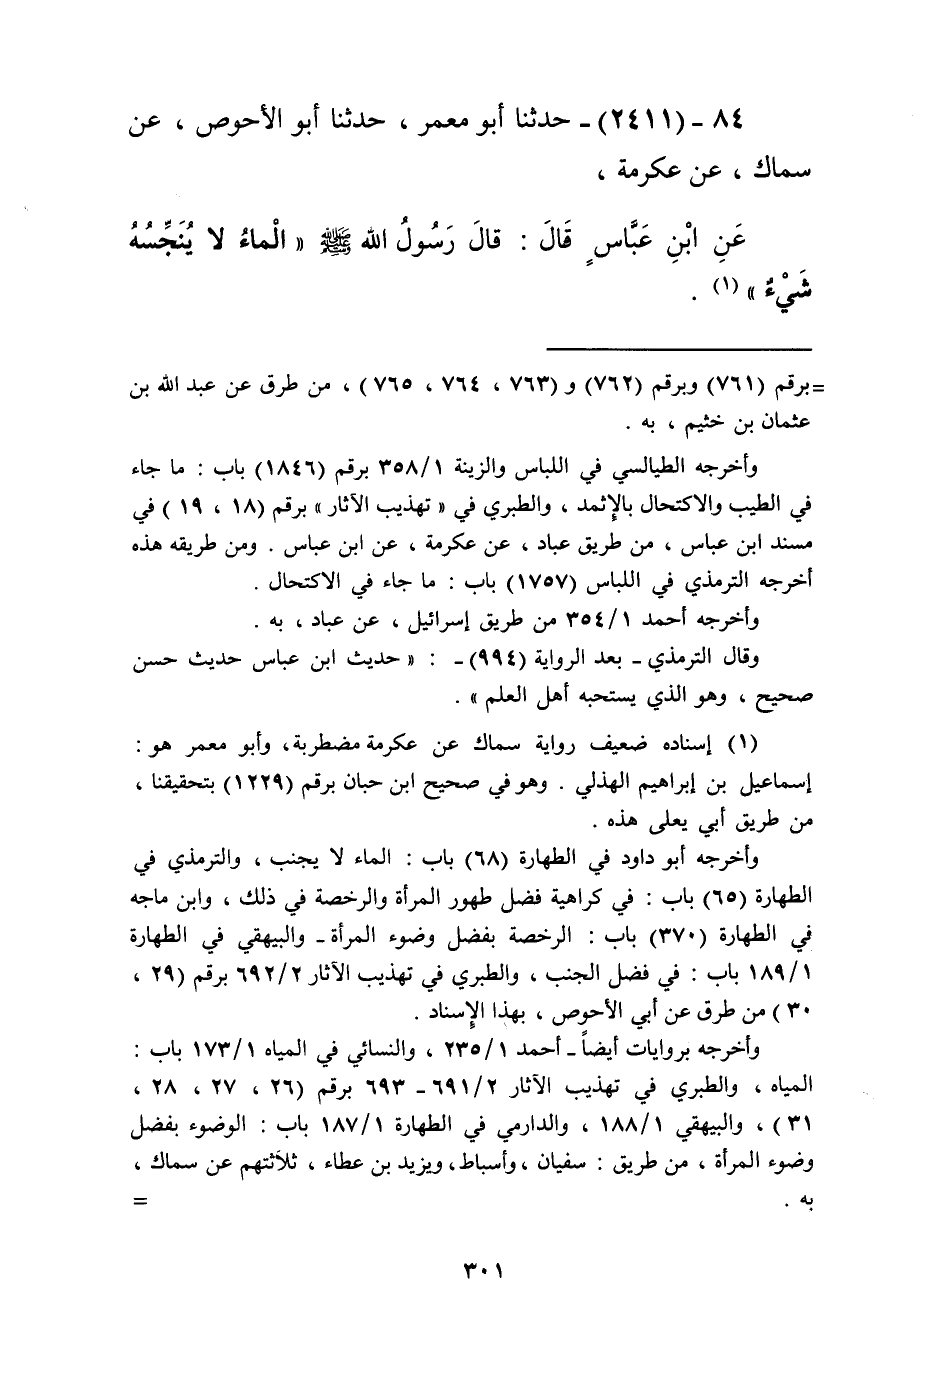 ٨٤ ـ (٢٤١١) ـ حدثنا أبو معمر ، حدثنا أبو الأحوص ، عن
سماك ، عن عكرمة ،
عَنِ ابْنِ عَبَّاسٍ قَالَ : قالَ رَسُولُ الله ﷺ « الْماءُ لا يُنَجِّسُهُ
شَيْءٌ » (١) .
=برقم (٧٦١) وبرقم (٧٦٢) و (٧٦٣ ، ٧٦٤ ، ٧٦٥ ) ، من طرق عن عبد الله بن
عثمان بن خثيم ، به .
وأخرجه الطيالسي في اللباس والزينة ٣٥٨/١ برقم (١٨٤٦) باب : ما جاء
في الطيب والاكتحال بالإثمد ، والطبري في « تهذيب الآثار » برقم (١٨ ، ١٩ ) في
مسند ابن عباس ، من طريق عباد ، عن عكرمة ، عن ابن عباس . ومن طريقه هذه
أخرجه الترمذي في اللباس (١٧٥٧) باب : ما جاء في الاكتحال .
وأخرجه أحمد ٣٥٤/١ من طريق إسرائيل ، عن عباد ، به .
وقال الترمذي ـ بعد الرواية (٩٩٤) ـ : « حديث ابن عباس حديث حسن
صحيح ، وهو الذي يستحبه أهل العلم » .
(١) إسناده ضعيف رواية سماك عن عكرمة مضطربة، وأبو معمر هو :
إسماعيل بن إبراهيم الهذلي . وهو في صحيح ابن حبان برقم (١٢٢٩) بتحقيقنا ،
من طريق أبي يعلى هذه .
وأخرجه أبو داود في الطهارة (٦٨) باب : الماء لا يجنب ، والترمذي في
الطهارة (٦٥) باب : في كراهية فضل طهور المرأة والرخصة في ذلك ، وابن ماجه
في الطهارة (٣٧٠) باب : الرخصة بفضل وضوء المرأة ـ والبيهقي في الطهارة
١٨٩/١ باب : في فضل الجنب ، والطبري في تهذيب الآثار ٦٩٢/٢ برقم (٢٩ ،
٣٠ ) من طرق عن أبي الأحوص ، بهذا الإسناد .
وأخرجه بروايات أيضاً ـ أحمد ٢٣٥/١ ، والنسائي في المياه ١٧٣/١ باب :
المياه ، والطبري في تهذيب الآثار ٦٩١/٢ ـ ٦٩٣ برقم (٢٦ ، ٢٧ ، ٢٨ ،
٣١ ) ، والبيهقي ١٨٨/١ ، والدارمي في الطهارة ١٨٧/١ باب : الوضوء بفضل
وضوء المرأة ، من طريق : سفيان ،وأسباط، ويزيد بن عطاء ، ثلاثتهم عن سماك ،
به . =
٣٠١